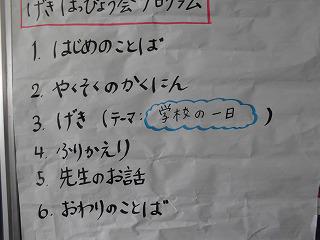 げきはっぴょう会プログラム
1. はじめのことば
2. やくそくのかくにん
3. げき (テーマ:学校の一日)
4. ふりかえり
5. 先生のお話
6. おわりのことば